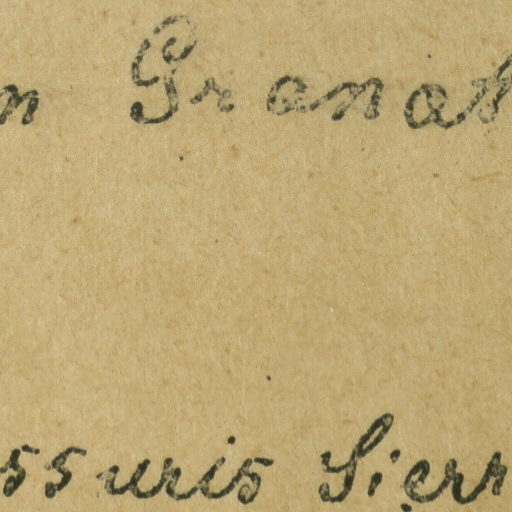 n Granat
ssuris Sierr